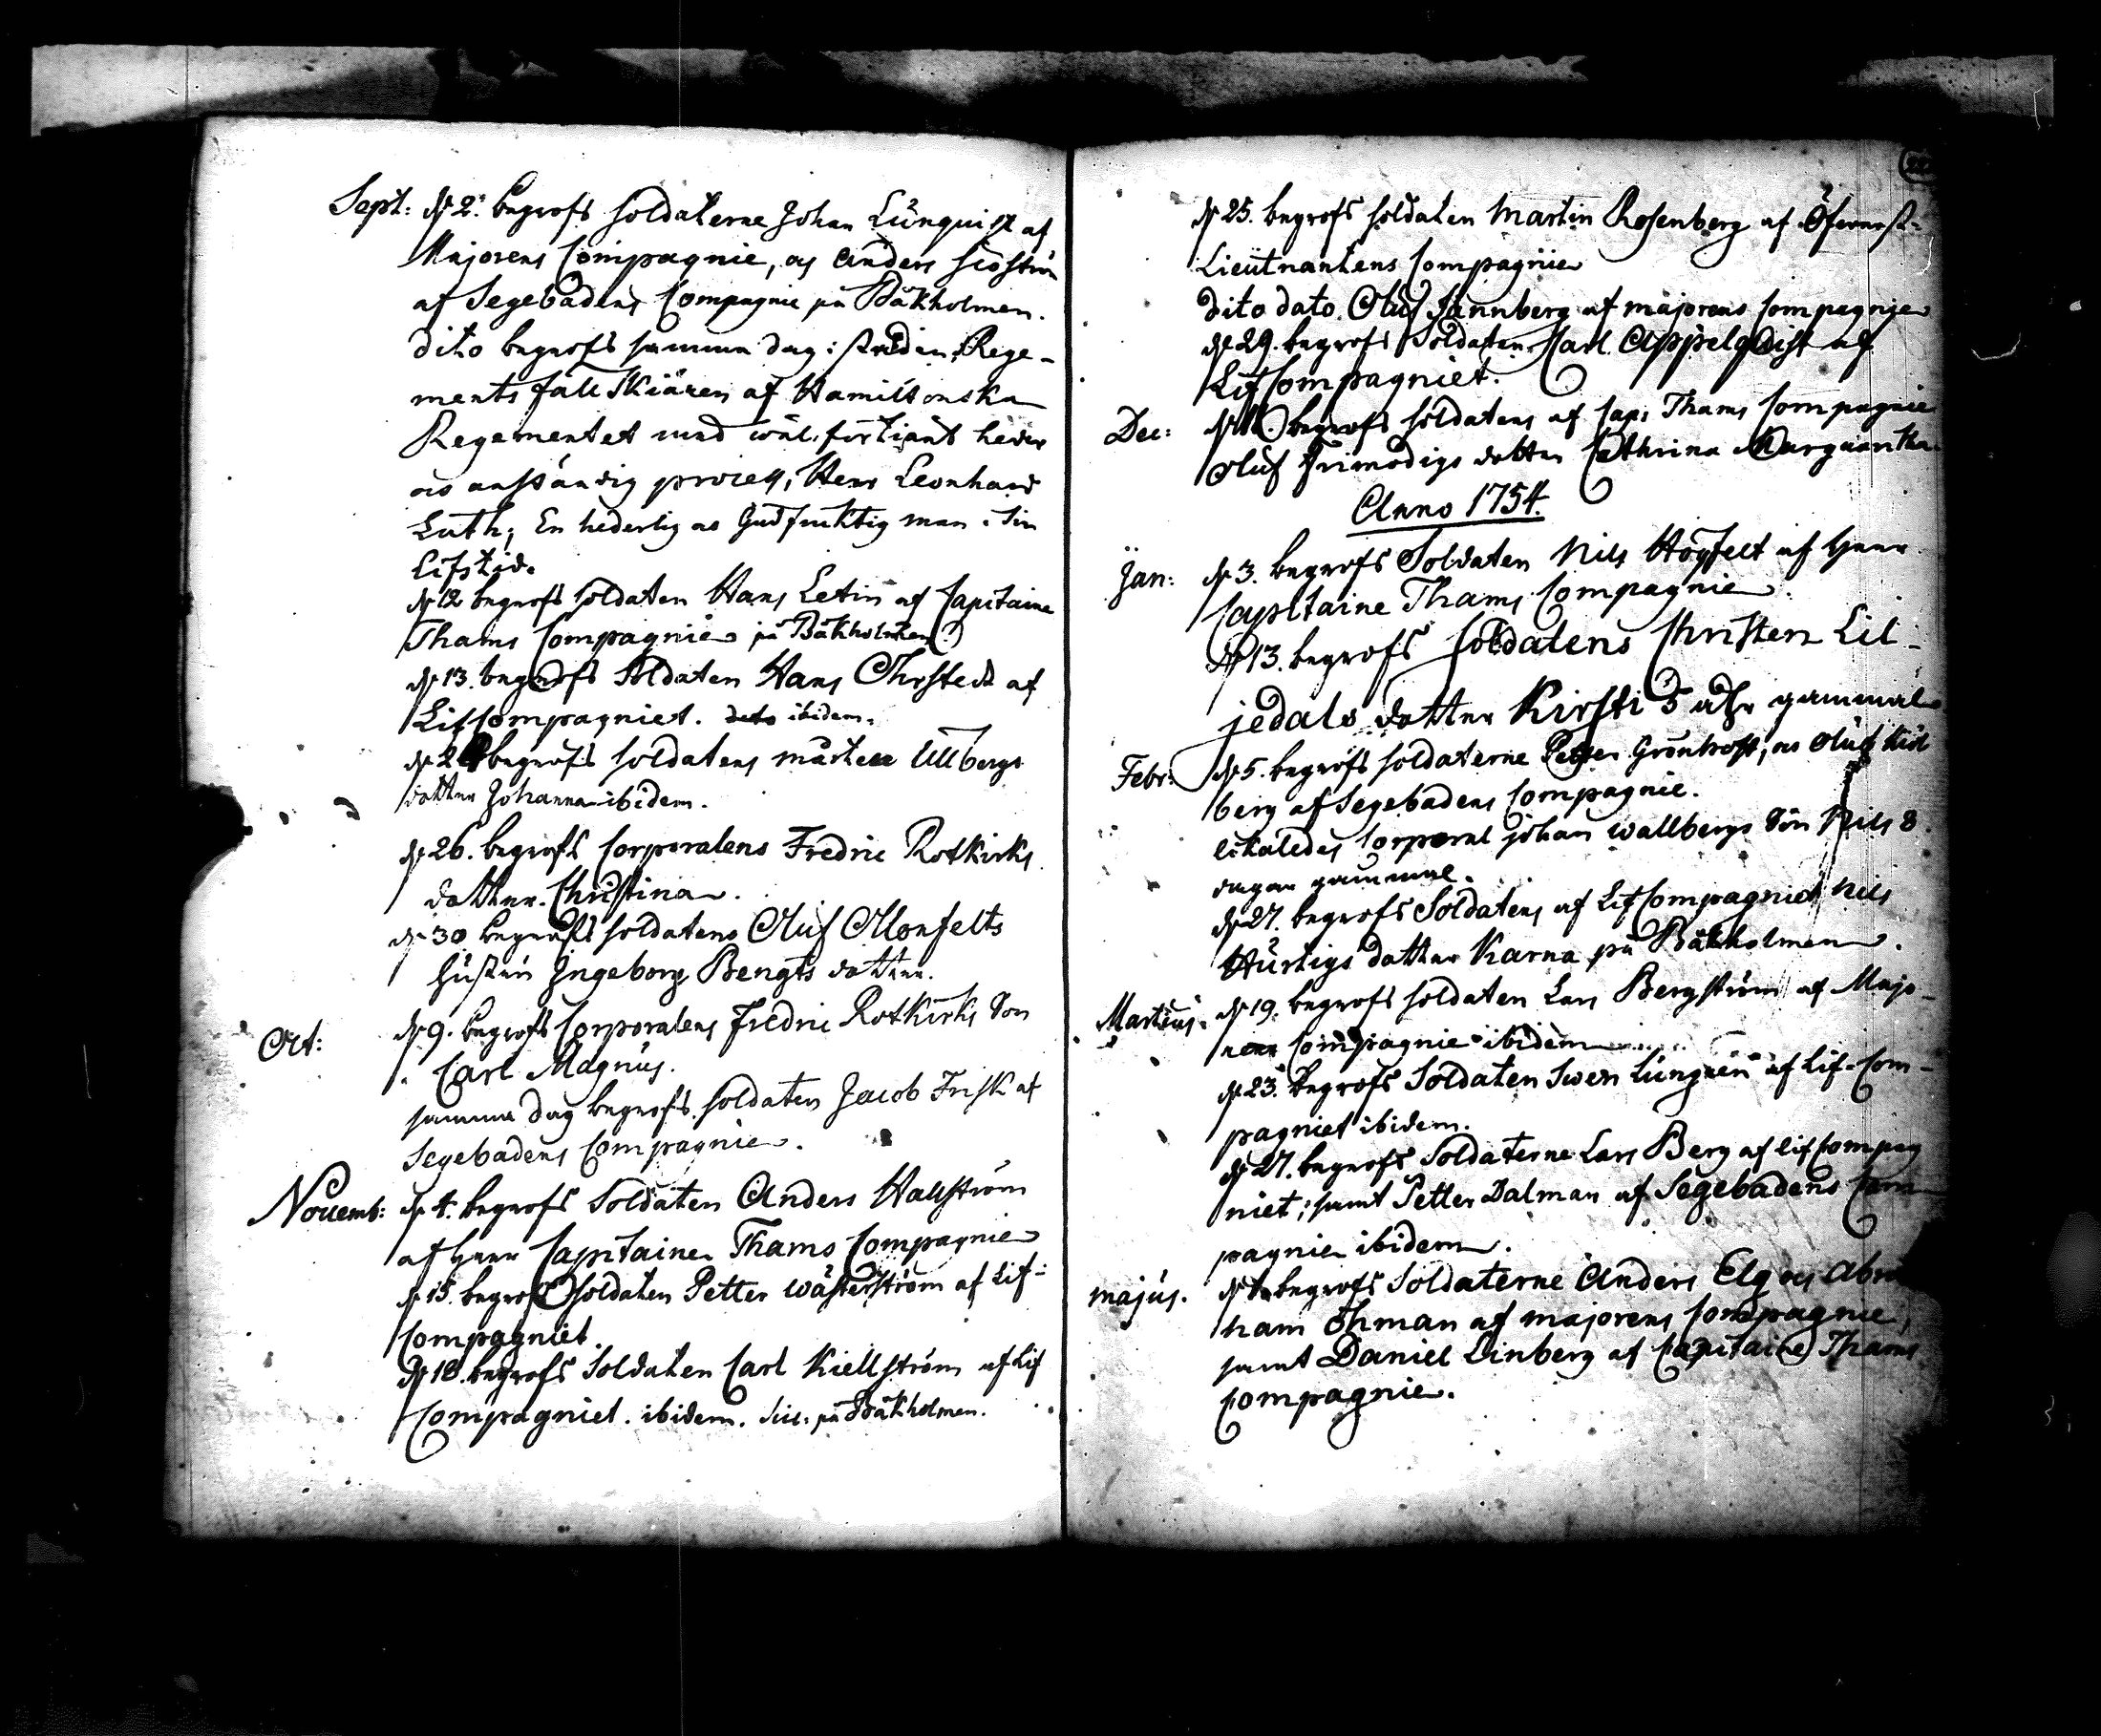 Sept: d. 2. begrofs soldaterne Johan Lünquist af
Majorens Compagnie, os Anders Siöström
af Segebadens Compagnie på Bäkholmen.
dito begrofs samma dag i staden Rege-
ments fältskiären af Hamiltonska
Regementet med wäl. förtiänt heder
os anständig process, Herr Leonhard
Luth; En hederlig os Gudfrucktig man i sin
Lifstid.
d. 12 begrofs soldaten Hans Letin af Capitaine
Thams Compagnie på Bäkholmen
d. 13. begrofs Soldaten Hans Thrstedt af
LifCompagniet. dito ibidem.
begrofs soldatens mårten Ullbergs
dotter Johanna ibidem.
d. 26. begrofs Corporalens Fredric Rotkirks
dotter Christina.
d. 30 begrofs soldatens Oluf Monfelts
hustru Ingeborg Bengts dotter.
Oct: d. 9. begrofs Corporalens Fredric Rotkirks Son
Carl Magnus.
samma dag begrofs soldaten Jacob Frisk af
Segebadens Compagnie.
Novemb: d. 4. begrofs Soldaten Anders Hallström
af herr Capitaine Thams Compagnie
d. 15. begrofs soldaten Petter Wästerström af Lif-
Compagniet.
d. 18. begrofs Soldaten Carl Kiellström af Lif
Compagniet. ibidem. Scil: på Bäkholmen.
d. 25. begrofs soldaten Martin Rosenberg af Öfwerst-
Lieutnantens Compagnie
dito dato Oluf Sannberg af majorens Compagnie
d. 29. begrofs Soldaten Carl Appelqwist af
LifCompagniet.
Dec: begrofs soldatens af Cap: Thams Compagnie
Oluf Frimodigs dotter Cathrina Margaretha
Anno 1754.
Jan: d. 3. begrofs Soldaten Nils Högfelt af herr
Capitaine Thams Compagnie.
d. 13. begrofs soldatens Christen Lil-
jedals dotter Kirsti 5 åhr gammal
Febr: d. 5. begrofs soldaterne Petter Grönkvst, os Oluf Kiöl
berg af Segebadens Compagnie.
likaledes Corporal johan Wallbergs Sön Nils 8
dagar gammal.
d. 27. begrofs Soldatens af LifCompagniet Nils
Hurtigs dotter Karna på Bäkholmen.
Martius. d. 19. begrofs soldaten Lars Bergström af Majo-
rens Compagnie ibidem
d. 23. begrofs Soldaten Swen Lungren af Lif-Com-
pagniet ibidem.
d. 27. begrofs Soldaterne Lars Berg af lifCompag
niet; samt Petter Dalman af Segebadens Com
pagnie ibidem.
majus. begrofs Soldaterne Anders Elg os Abra
ham Öhman af majorens Compagnie,
samt Daniel Linberg af Capitaine Thams
Compagnie.